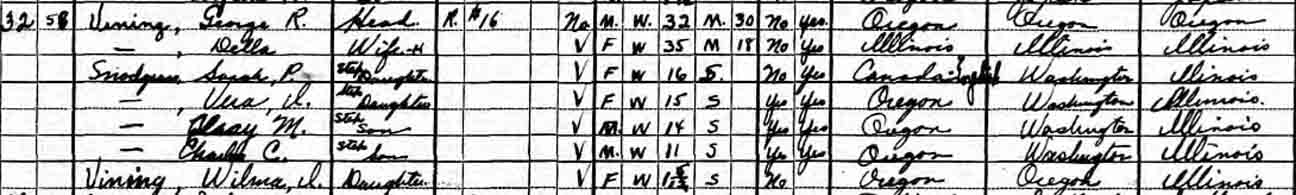 32 58 Vining, George R. Head R. $16 No M. W. 32 M. 30 No Yes. Oregon Oregon Oregon
— , Della Wife-H V F W 35 M 18 No Yes Illinois Illinois Illinois
Snodgrass, Sarah, P. Step Daughter V F W 16 S. No Yes Canada-English Washington Illinois
— , Vera, I. Step Daughter V F W 15 S Yes Yes Oregon Washington Illinois.
— , M. Step Son V M. W 14 S Yes Yes Oregon Washington Illinois
— Charles C. Step Son V M. W 11 S Yes Yes Oregon Washington Illinois
Vining, Wilma, I. Daughter V F W S No Oregon Oregon Illinois